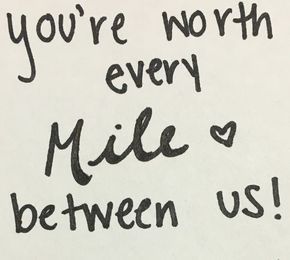 you're worth
every
Mile ♡
between us!